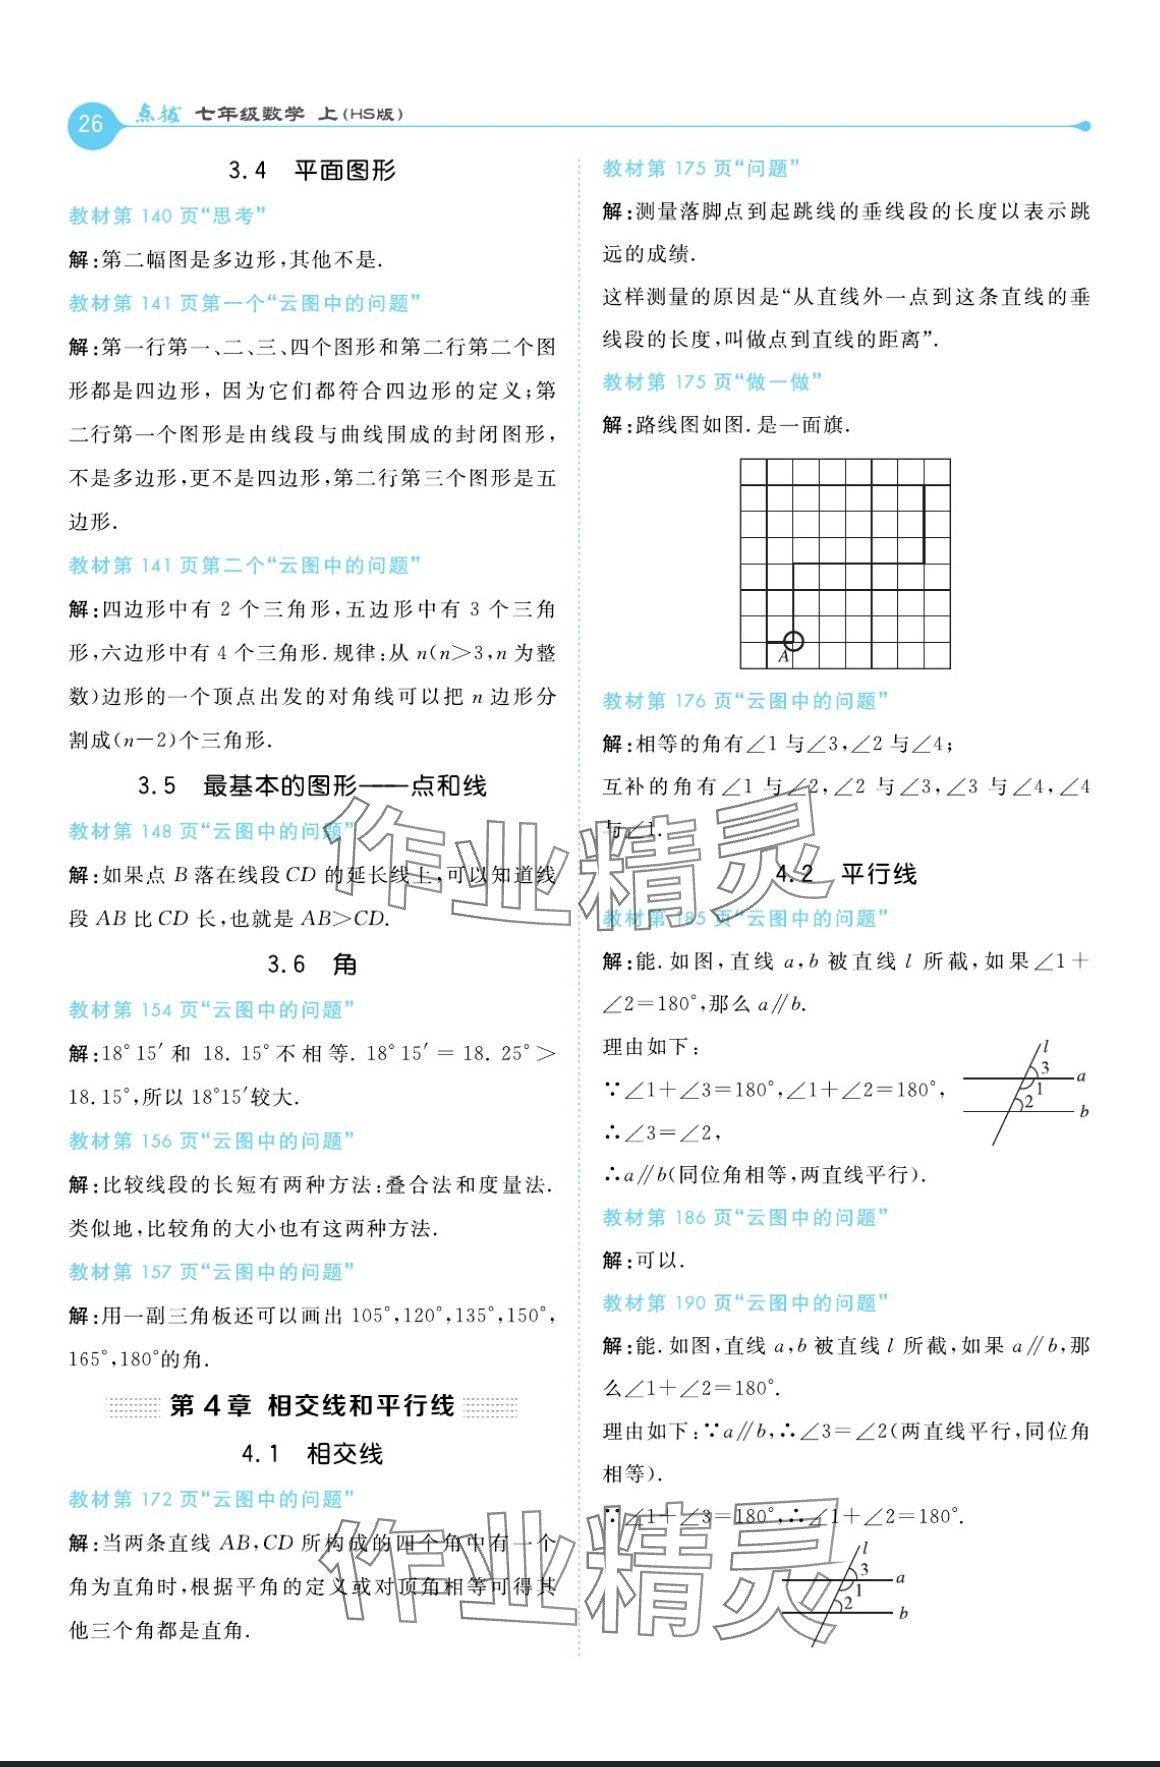 26 点拨 七年级数学 上(HS版)
3.4 平面图形
教材第 140 页“思考”
解:第二幅图是多边形,其他不是.
教材第 141 页第一个“云图中的问题”
解:第一行第一、二、三、四个图形和第二行第二个图
形都是四边形，因为它们都符合四边形的定义;第
二行第一个图形是由线段与曲线围成的封闭图形,
不是多边形,更不是四边形,第二行第三个图形是五
边形.
教材第 141 页第二个“云图中的问题”
解:四边形中有 2 个三角形,五边形中有 3 个三角
形,六边形中有 4 个三角形.规律:从 n(n>3,n 为整
数)边形的一个顶点出发的对角线可以把 n 边形分
割成(n-2)个三角形.
3.5 最基本的图形——点和线
教材第 148 页“云图中的问题”
解:如果点 B 落在线段 CD 的延长线上,可以知道线
段 AB 比 CD 长,也就是 AB>CD.
3.6 角
教材第 154 页“云图中的问题”
解:18°15′和 18.15°不相等.18°15′=18.25°>
18.15°,所以 18°15′较大.
教材第 156 页“云图中的问题”
解:比较线段的长短有两种方法:叠合法和度量法.
类似地,比较角的大小也有这两种方法.
教材第 157 页“云图中的问题”
解:用一副三角板还可以画出 105°,120°,135°,150°,
165°,180°的角.
第 4 章 相交线和平行线
4.1 相交线
教材第 172 页“云图中的问题”
解:当两条直线 AB,CD 所构成的四个角中有一个
角为直角时,根据平角的定义或对顶角相等可得其
他三个角都是直角.
教材第 175 页“问题”
解:测量落脚点到起跳线的垂线段的长度以表示跳
远的成绩.
这样测量的原因是“从直线外一点到这条直线的垂
线段的长度,叫做点到直线的距离”.
教材第 175 页“做一做”
解:路线图如图.是一面旗.
A
教材第 176 页“云图中的问题”
解:相等的角有∠1 与∠3,∠2 与∠4;
互补的角有∠1 与∠2,∠2 与∠3,∠3 与∠4,∠4
与∠1.
4.2 平行线
教材第 185 页“云图中的问题”
解:能.如图,直线 a,b 被直线 l 所截,如果∠1+
∠2=180°,那么 a∥b.
理由如下:
∵∠1+∠3=180°,∠1+∠2=180°,
∴∠3=∠2,
∴a∥b(同位角相等,两直线平行).
l
3
a
1
2
b
教材第 186 页“云图中的问题”
解:可以.
教材第 190 页“云图中的问题”
解:能.如图,直线 a,b 被直线 l 所截,如果 a∥b,那
么∠1+∠2=180°.
理由如下:∵a∥b,∴∠3=∠2(两直线平行,同位角
相等).
∵∠1+∠3=180°,∴∠1+∠2=180°.
l
3
a
1
2
b
作业精灵
作业精灵